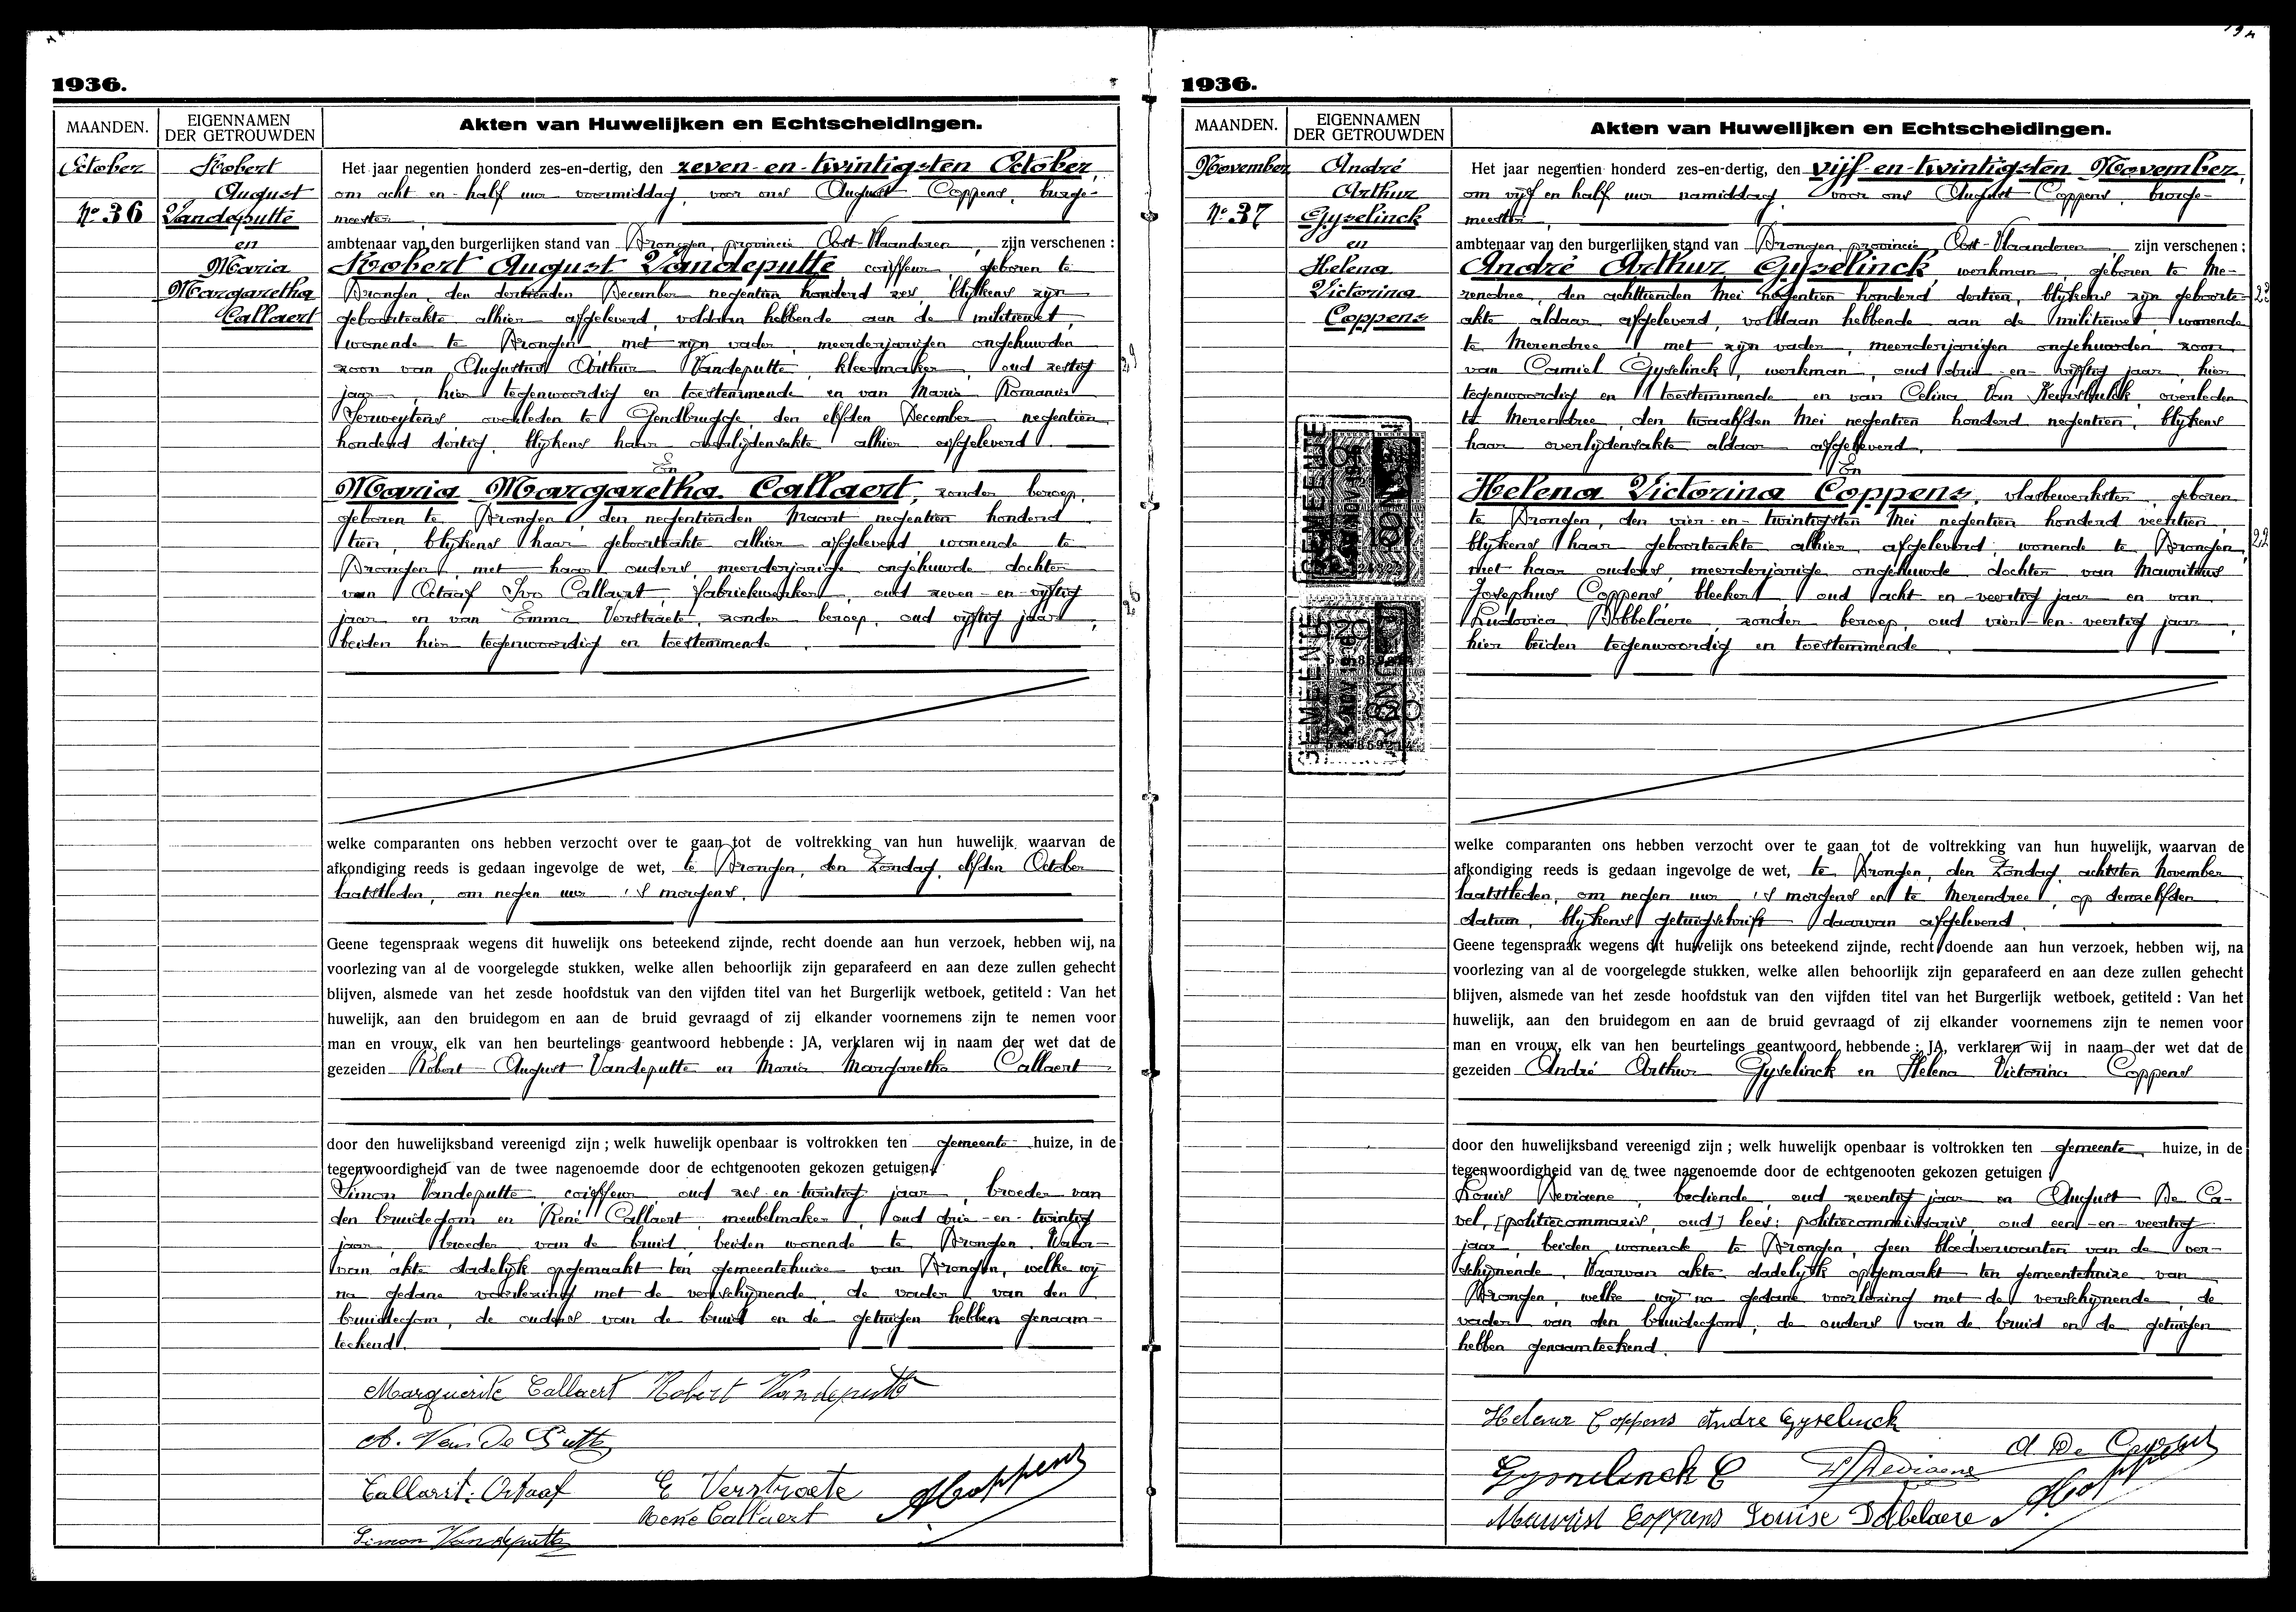 1936.
MAANDEN.
EIGENNAMEN
DER GETROUWDEN
Akten van Huwelijken en Echtscheidingen.
October
No 36
Robert
August
Vandeputte
en
Maria
Margaretha
Callaert
Het jaar negentien honderd zes-en-dertig, den zeven-en-twintigsten October,
om acht en half uur voormiddag, voor ons August Coppens, burge-
meester,
ambtenaar van den burgerlijken stand van Drongen, provincie Oost-Vlaanderen, zijn verschenen :
Robert August Vandeputte, coiffeur, geboren te
Drongen, den dertienden December negentien honderd zes, blijkens zijn
geboorteakte alhier afgeleverd, voldaan hebbende aan de militiewet,
wonende te Drongen, met zijn vader, meerderjarigen ongehuwden
zoon van Augustus Arthur Vandeputte, kleermaker, oud zestig
jaar, hier tegenwoordig en toestemmende en van Maria Romania
Serweytens, overleden te Gendbrugge, den elfden December negentien
honderd dertig, blijkens haar overlijdensakte alhier afgeleverd.
En
Maria Margaretha Callaert, zonder beroep,
geboren te Drongen, den negentienden Maart negentien honderd
tien, blijkens haar geboorteakte alhier afgeleverd, wonende te
Drongen, met haar ouders, meerderjarige ongehuwde dochter
van Octaaf Ivo Callaert, fabriekwerker, oud zeven-en-vijftig
jaar en van Emma Verstraete, zonder beroep, oud vijftig jaar,
beiden hier tegenwoordig en toestemmende.
welke comparanten ons hebben verzocht over te gaan tot de voltrekking van hun huwelijk, waarvan de
afkondiging reeds is gedaan ingevolge de wet, te Drongen, den Zondag, elfden October
laatstleden, om negen uur 's morgens.
Geene tegenspraak wegens dit huwelijk ons beteekend zijnde, recht doende aan hun verzoek, hebben wij, na
voorlezing van al de voorgelegde stukken, welke allen behoorlijk zijn geparafeerd en aan deze zullen gehecht
blijven, alsmede van het zesde hoofdstuk van den vijfden titel van het Burgerlijk wetboek, getiteld : Van het
huwelijk, aan den bruidegom en aan de bruid gevraagd of zij elkander voornemens zijn te nemen voor
man en vrouw, elk van hen beurtelings geantwoord hebbende : JA, verklaren wij in naam der wet dat de
gezeiden Robert August Vandeputte en Maria Margaretha Callaert
door den huwelijksband vereenigd zijn ; welk huwelijk openbaar is voltrokken ten gemeente huize, in de
tegenwoordigheid van de twee nagenoemde door de echtgenooten gekozen getuigen
Simon Vandeputte, coiffeur, oud zes-en-twintig jaar, broeder van
den bruidegom en René Callaert, meubelmaker, oud drie-en-twintig
jaar, broeder van de bruid, beiden wonende te Drongen. Waar-
van akte dadelijk opgemaakt ten gemeentehuize van Drongen, welke wij
na gedane voorlezing met de verschijnende, de vader van den
bruidegom, de ouders van de bruid en de getuigen hebben genaam-
teekend.
Marguerite Callaert Robert Vandeputte
A. Van De Putte
Callaert. Octaaf E Verstraete ACoppens
René Callaert
Simon Vandeputte
1936.
MAANDEN.
EIGENNAMEN
DER GETROUWDEN
Akten van Huwelijken en Echtscheidingen.
November
No 37
André
Arthur
Gyselinck
en
Helena
Victorina
Coppens
GEMEENTE
DRONGEN
GEMEENTE
DRONGEN
Het jaar negentien honderd zes-en-dertig, den vijf-en-twintigsten November,
om vijf en half uur namiddag, voor ons August Coppens, burge-
meester,
ambtenaar van den burgerlijken stand van Drongen, provincie Oost-Vlaanderen, zijn verschenen :
André Arthur Gyselinck, werkman, geboren te Me-
rendree, den achttienden Mei negentien honderd dertien, blijkens zijn geboorte-
akte aldaar afgeleverd, voldaan hebbende aan de militiewet, wonende
te Merendree met zijn vader, meerderjarigen ongehuwden zoon
van Camiel Gyselinck, werkman, oud drie-en-vijftig jaar, hier
tegenwoordig en toestemmende en van Celina Van overleden
te Merendree, den twaalfden Mei negentien honderd negentien, blijkens
haar overlijdensakte aldaar afgeleverd.
En
Helena Victorina Coppens, vlasbewerkster, geboren
te Drongen, den vier-en-twintigsten Mei negentien honderd veertien,
blijkens haar geboorteakte alhier afgeleverd, wonende te Drongen,
met haar ouders, meerderjarige ongehuwde dochter van Mauritius
Josephus Coppens, bleeker, oud acht-en-veertig jaar en van
Ludovica Dobbelaere, zonder beroep, oud vier-en-veertig jaar,
hier beiden tegenwoordig en toestemmende.
welke comparanten ons hebben verzocht over te gaan tot de voltrekking van hun huwelijk, waarvan de
afkondiging reeds is gedaan ingevolge de wet, te Drongen, den Zondag, achtsten November
laatstleden, om negen uur 's morgens en te Merendree, op denzelfden
datum, blijkens getuigschrift daarvan afgeleverd.
Geene tegenspraak wegens dit huwelijk ons beteekend zijnde, recht doende aan hun verzoek, hebben wij, na
voorlezing van al de voorgelegde stukken, welke allen behoorlijk zijn geparafeerd en aan deze zullen gehecht
blijven, alsmede van het zesde hoofdstuk van den vijfden titel van het Burgerlijk wetboek, getiteld : Van het
huwelijk, aan den bruidegom en aan de bruid gevraagd of zij elkander voornemens zijn te nemen voor
man en vrouw, elk van hen beurtelings geantwoord hebbende : JA, verklaren wij in naam der wet dat de
gezeiden André Arthur Gyselinck en Helena Victorina Coppens
door den huwelijksband vereenigd zijn ; welk huwelijk openbaar is voltrokken ten gemeente huize, in de
tegenwoordigheid van de twee nagenoemde door de echtgenooten gekozen getuigen
Louis Deviaene, bediende, oud zeventig jaar en August De Ca-
vel, [politiecommaris, oud] lees: politiecommissaris, oud een-en-veertig
jaar, beiden wonende te Drongen, geen bloedverwanten van de ver-
schijnende. Waarvan akte dadelijk opgemaakt ten gemeentehuize van
Drongen, welke wij na gedane voorlezing met de verschijnende, de
vader van den bruidegom, de ouders van de bruid en de getuigen
hebben genaamteekend.
Helena Coppens Andre Gyselinck
Gyselinck C Deviaene A De
Maurist Coppens Louise Dobbelaere ACoppens